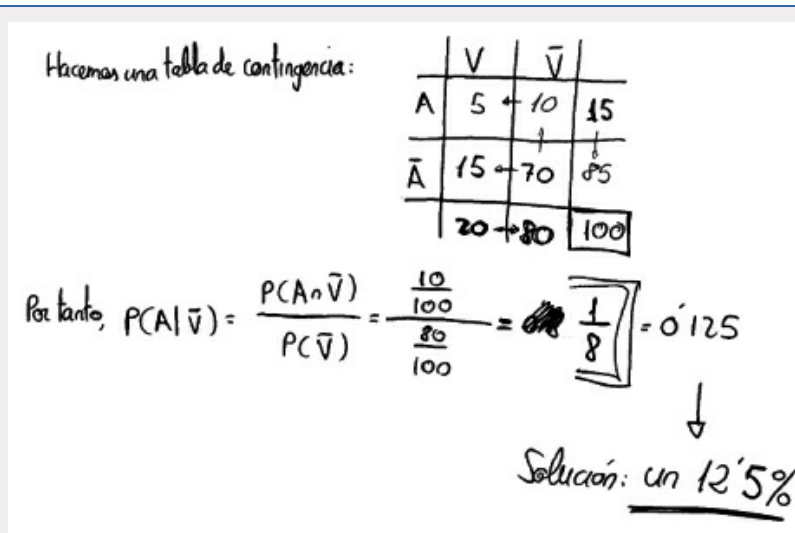 Hacemos una tabla de contingencia:
V V̄
A 5 ← 10 15
Ā 15 ← 70 85
20 → 80 100
Por tanto, P(A|V̄) = P(A∩V̄) / P(V̄) = (10/100) / (80/100) = 1/8 = 0'125
Solución: un 12'5%